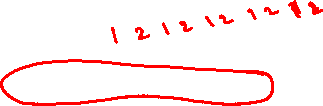 1 2 1 2 1 2 1 2 1 2